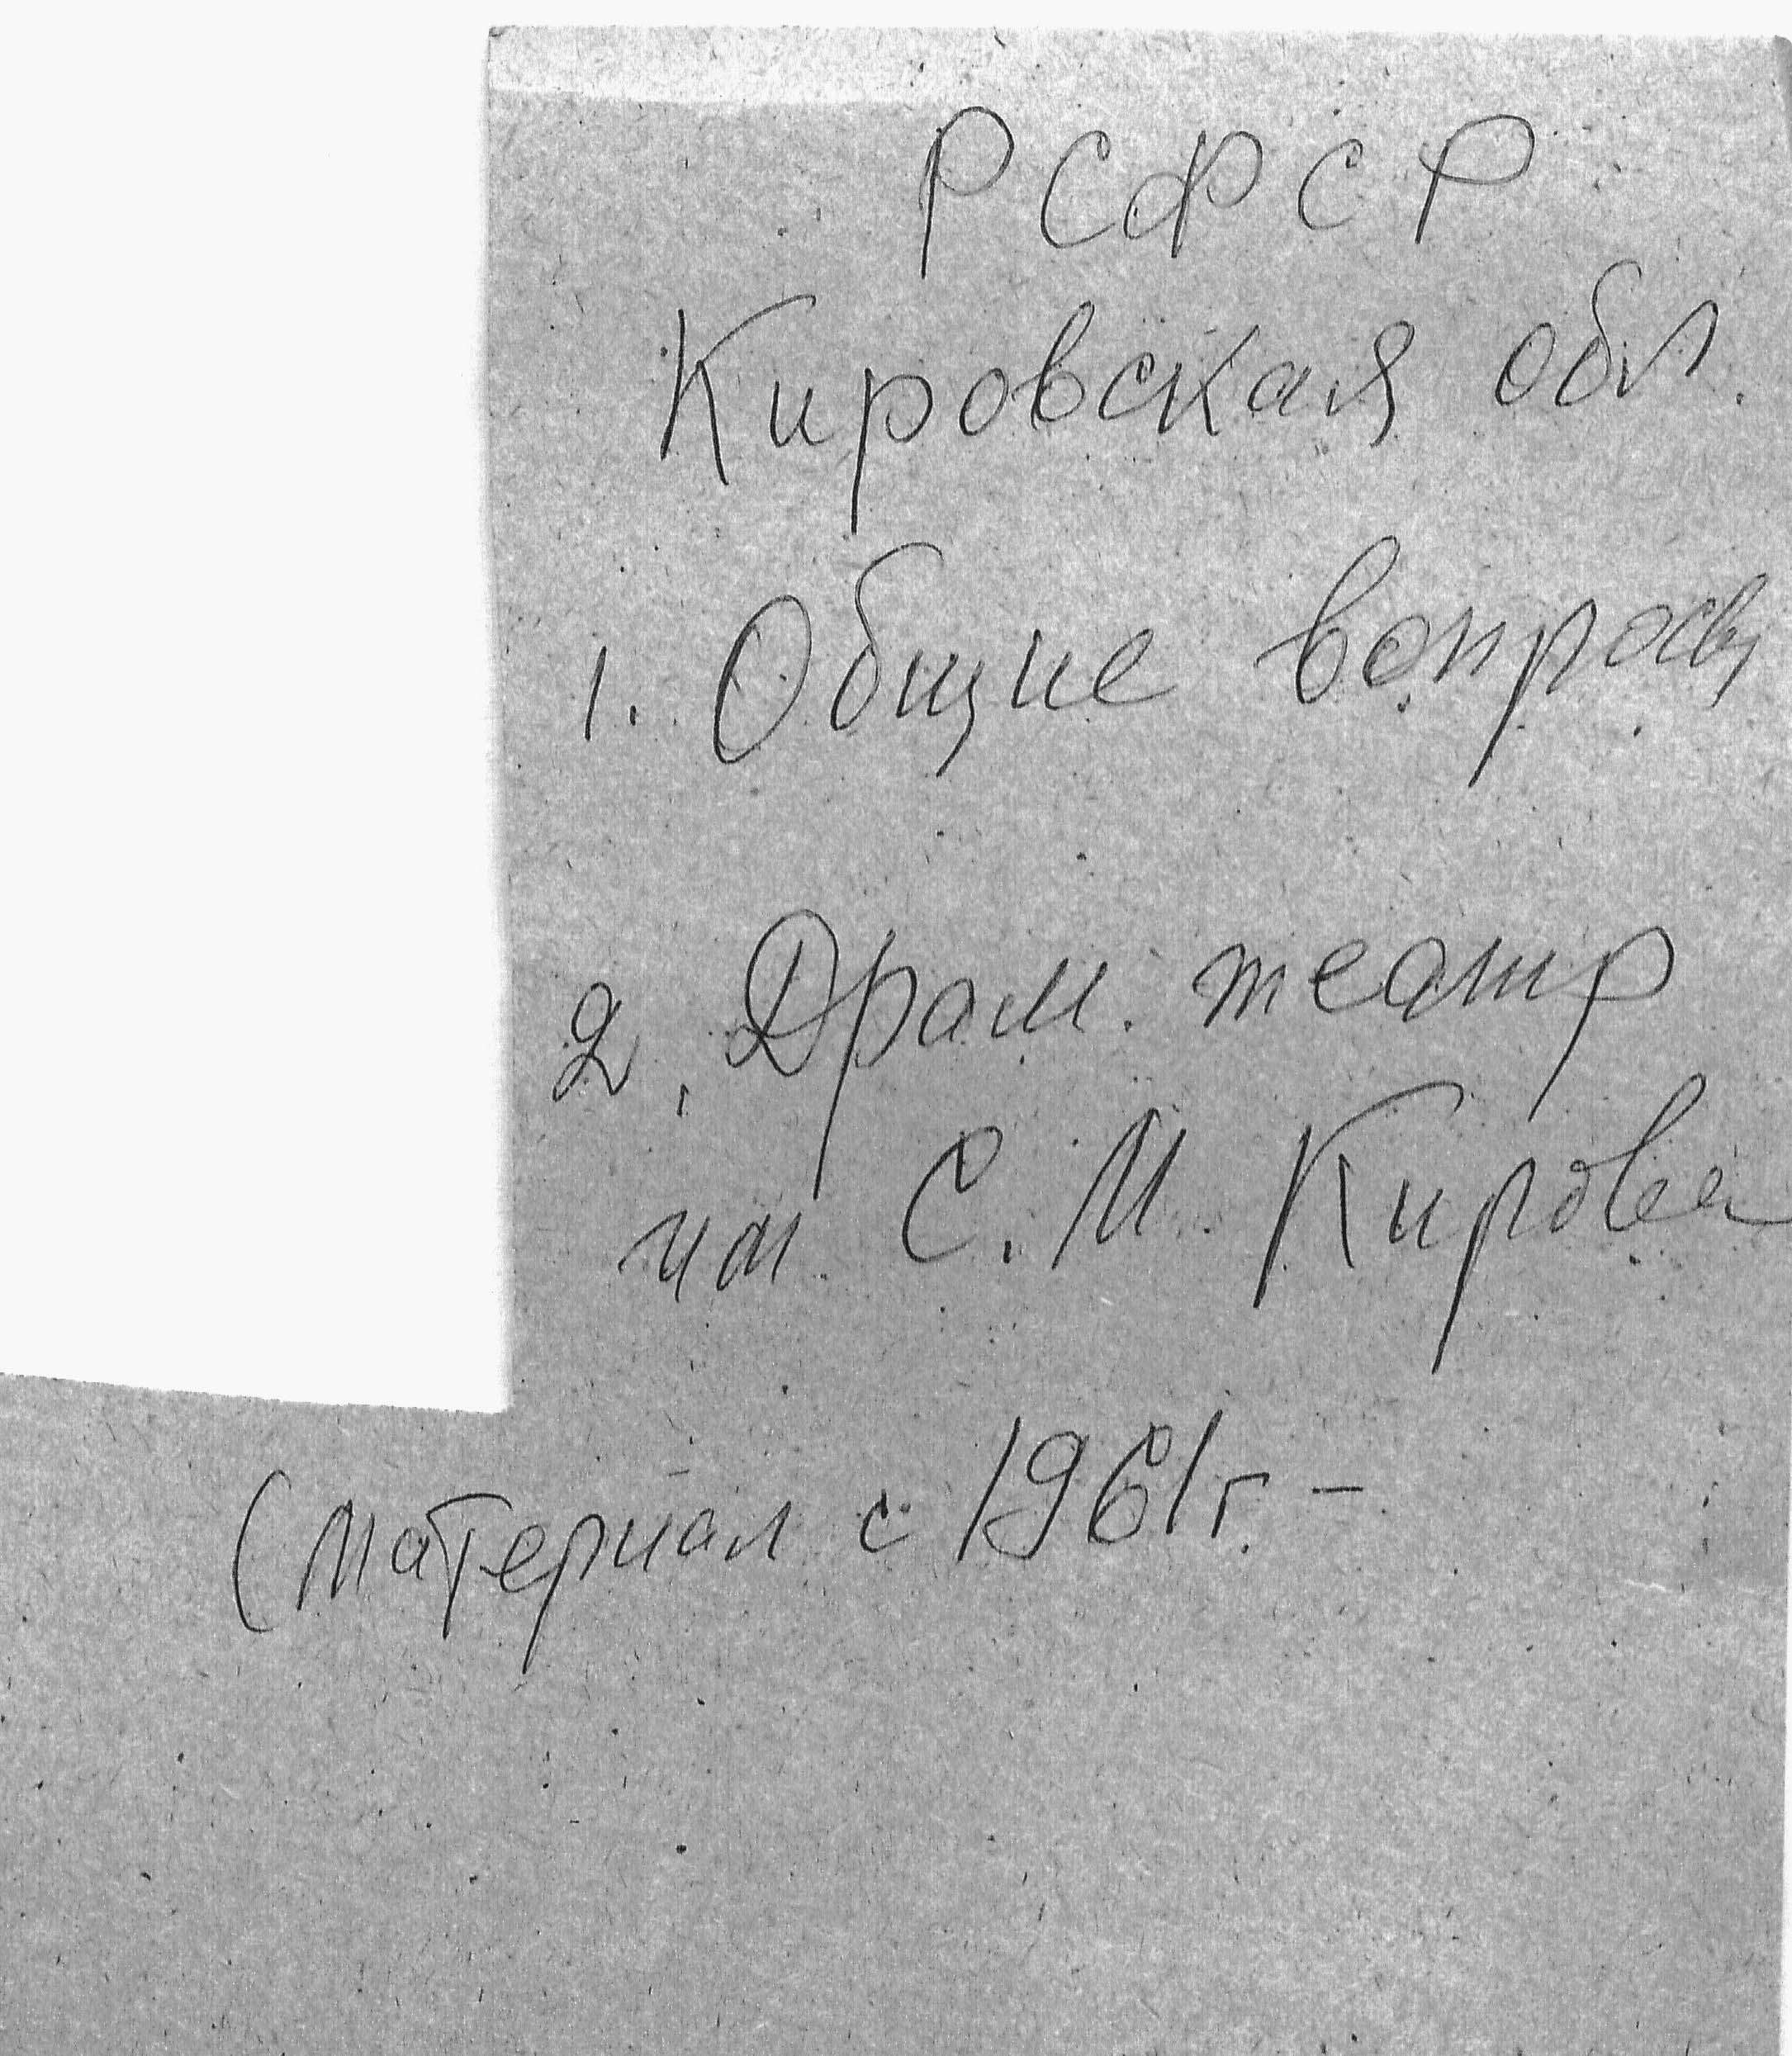 РСФСР
Кировская обл.
1. Общие вопросы
2. Драм. театр
им. С. М. Кирова
(материал с 1961г. –